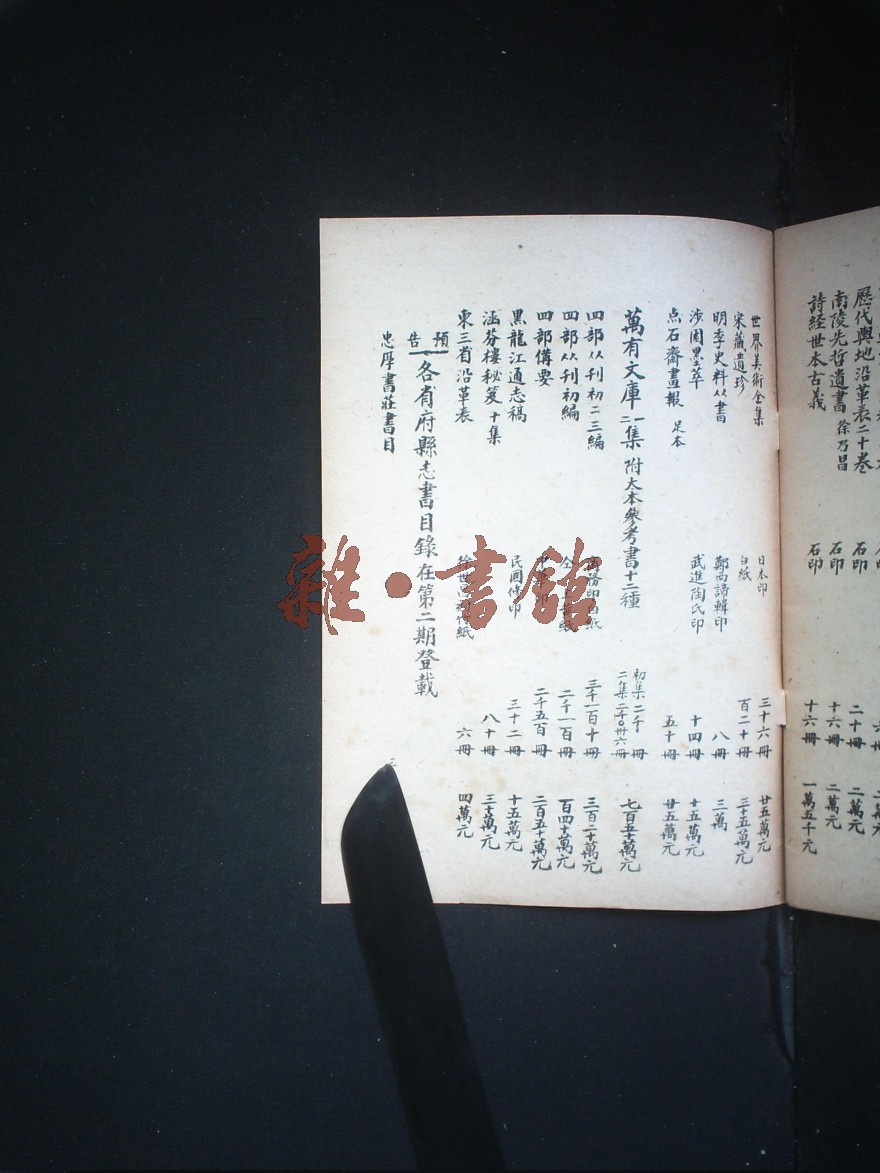 歷代輿地沿革表二十卷 石印 二十冊 二萬元
南陵先哲遺書 徐乃昌 石印 十六冊 二萬元
詩經世本古義 石印 十六冊 一萬五千元
世界美術全集 日本印 三十六冊 廿五萬元
宋藏遺珍 白紙 百二十冊 三十五萬元
明季史料从書 鄭西諦輯印 八冊 三萬
涉园墨萃 武進陶氏印 十四冊 十五萬元
点石齋畫報 足本 五十冊 廿五萬元
萬有文庫一二集 附大本參考書十二種 初集二千冊 二集二千〇卅六冊 七百五十萬元
四部从刊初二三編 三千一百十冊 三百二十萬元
四部从刊初編 二千一百冊 百四十萬元
四部備要 二千五百冊 二百五十萬元
黑龍江通志稿 民國修印 三十二冊 十五萬元
涵芬樓秘笈 十集 八十冊 三十萬元
東三省沿革表 六冊 四萬元
預告 各省府縣志書目錄在第二期登載
忠厚書莊書目
雜·書館